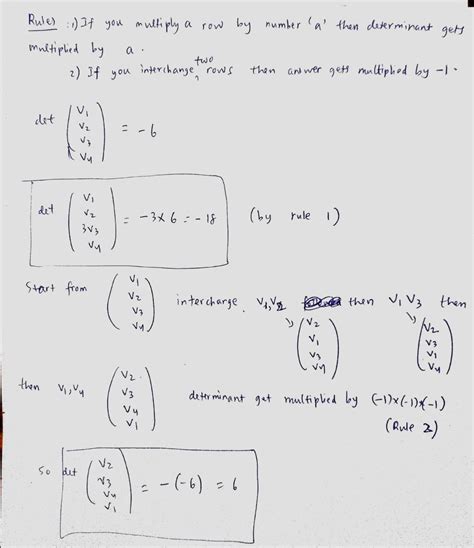 Rules :1) If you multiply a row by number 'a' then determinant gets
multiplied by a.
2) If you interchange two rows then answer gets multiplied by -1.
det ( V1 V2 V3 V4 ) = -6
det ( V1 V2 3V3 V4 ) = -3×6 = -18 (by rule 1)
Start from ( V1 V2 V3 V4 ) interchange V1,V2 then V1 V3 then
( V2 V1 V3 V4 ) ( V2 V3 V1 V4 )
then V1,V4 ( V2 V3 V4 V1 ) determinant get multiplied by (-1)×(-1)×(-1)
(Rule 2)
So det ( V2 V3 V4 V1 ) = -(-6) = 6